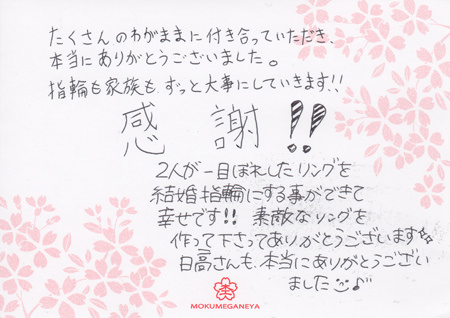 たくさんのわがままに付き合っていただき、
本当にありがとうございました。
指輪も家族もずっと大事にしていきます!!
感 謝 !!
2人が一目ぼれしたリングを
結婚指輪にする事ができて
幸せです!! 素敵なリングを
作って下さってありがとうございます☆
日高さんも、本当にありがとうござい
ました♪
MOKUMEGANEYA